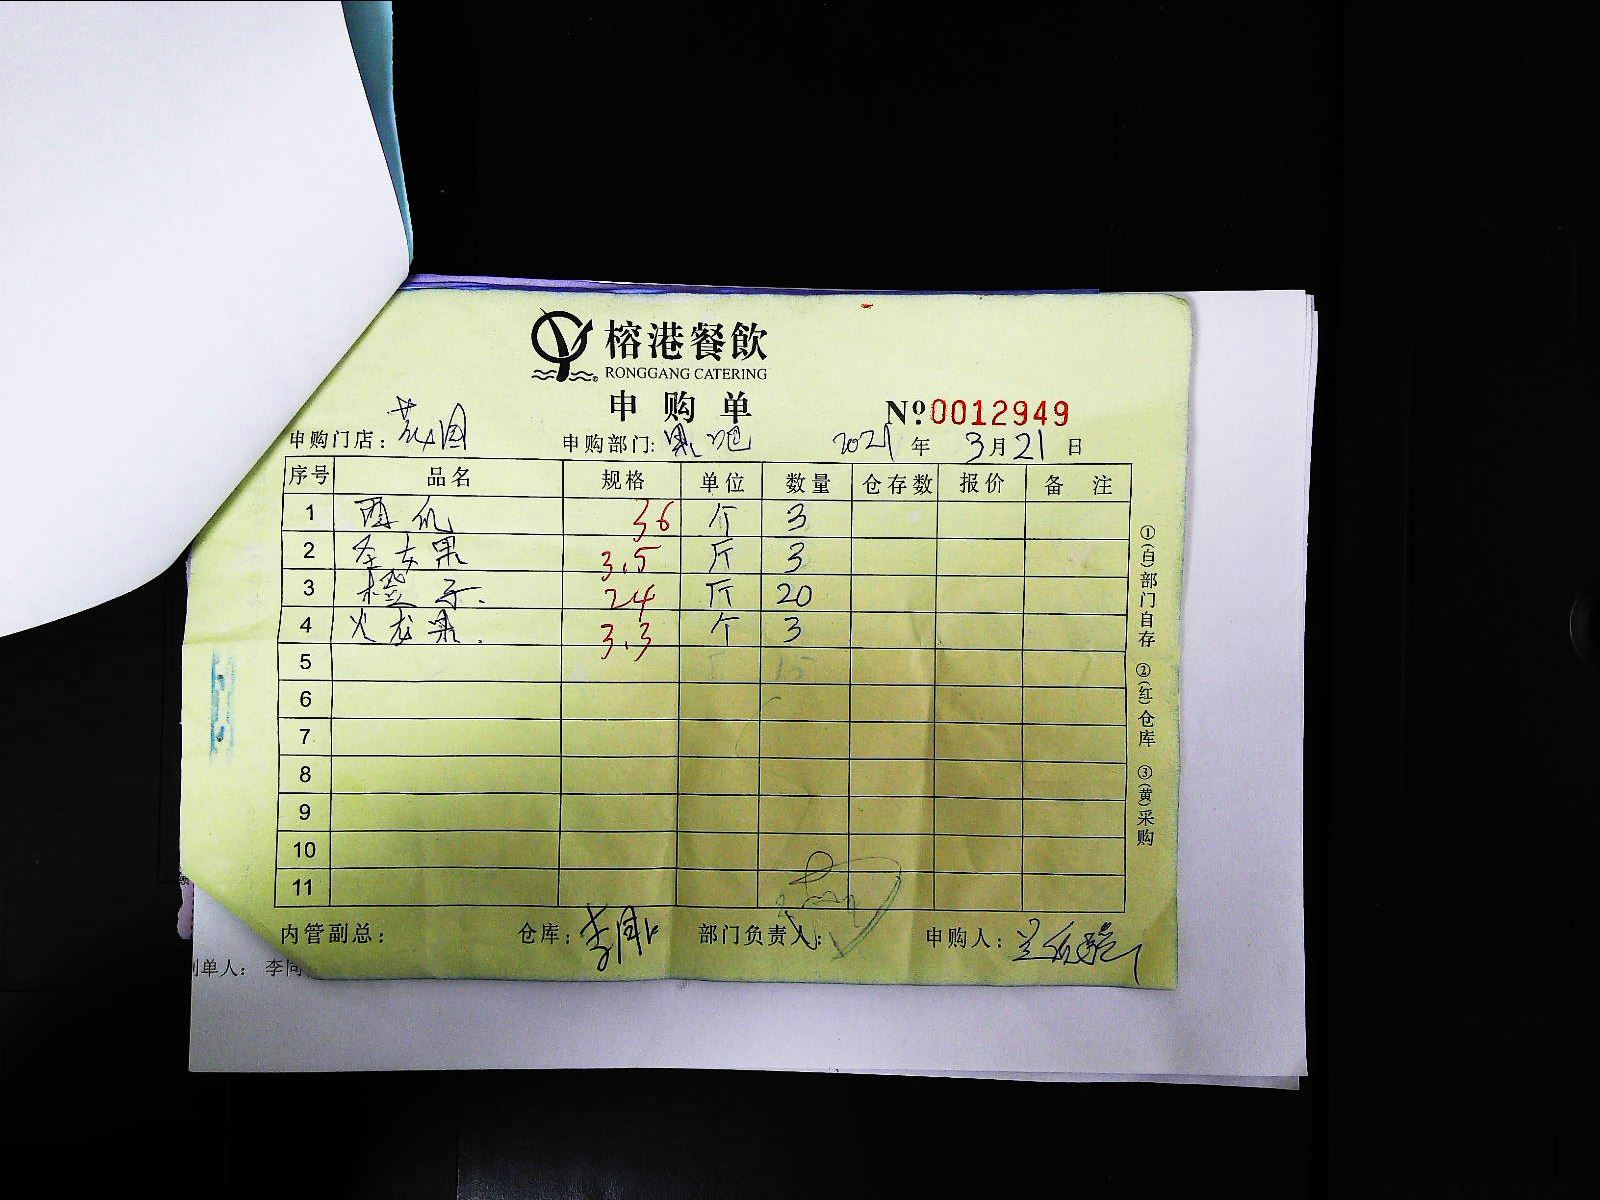 榕港餐飲
RONGGANG CATERING
申购单
№0012949
申购门店：花园 申购部门:果吧 2021年3月21日
序号 品名 规格 单位 数量 仓存数 报价 备注
1 西瓜 36 个 3
2 圣女果 3.5 斤 3
3 橙子. 24 斤 20
4 火龙果. 3.3 个 3
5
6
7
8
9
10
11
内管副总： 仓库： 部门负责人： 申购人：
①(白)部门自存 ②(红)仓库 ③(黄)采购
单人： 李同